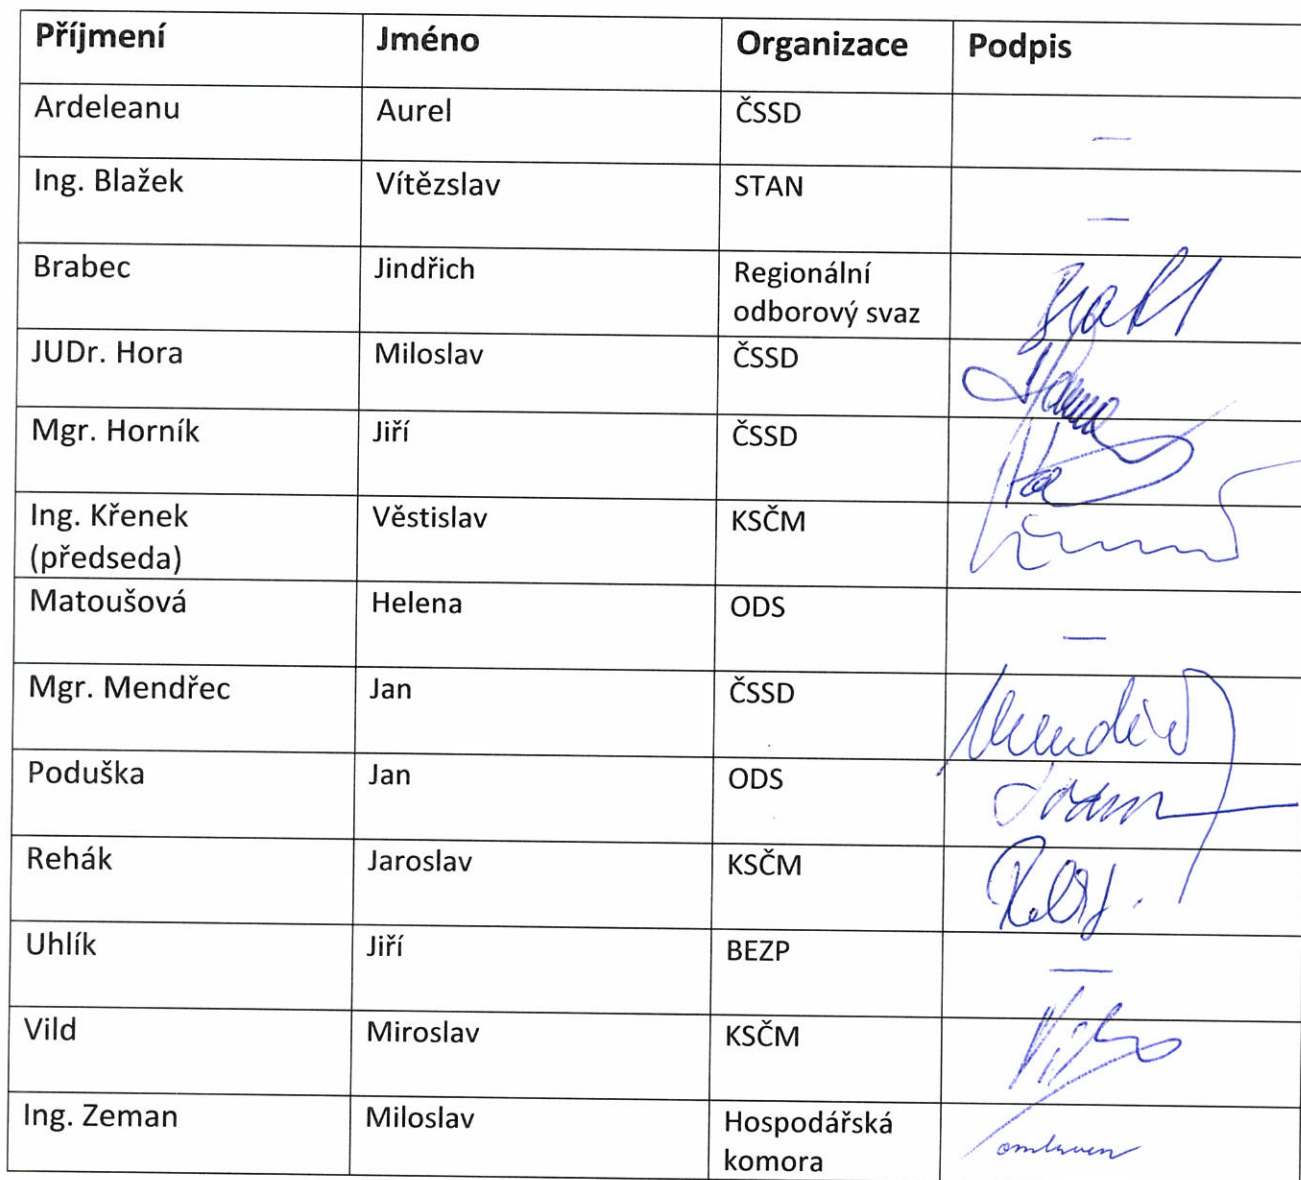 Příjmení Jméno Organizace Podpis
Ardeleanu Aurel ČSSD —
Ing. Blažek Vítězslav STAN —
Brabec Jindřich Regionální
odborový svaz
JUDr. Hora Miloslav ČSSD
Mgr. Horník Jiří ČSSD
Ing. Křenek Věstislav KSČM
(předseda)
Matoušová Helena ODS —
Mgr. Mendřec Jan ČSSD
Poduška Jan ODS
Rehák Jaroslav KSČM
Uhlík Jiří BEZP —
Vild Miroslav KSČM
Ing. Zeman Miloslav Hospodářská
komora omluven